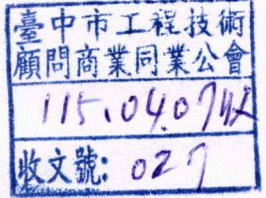 臺中市工程技術
顧問商業同業公會
115.04.07收
收文號: 027